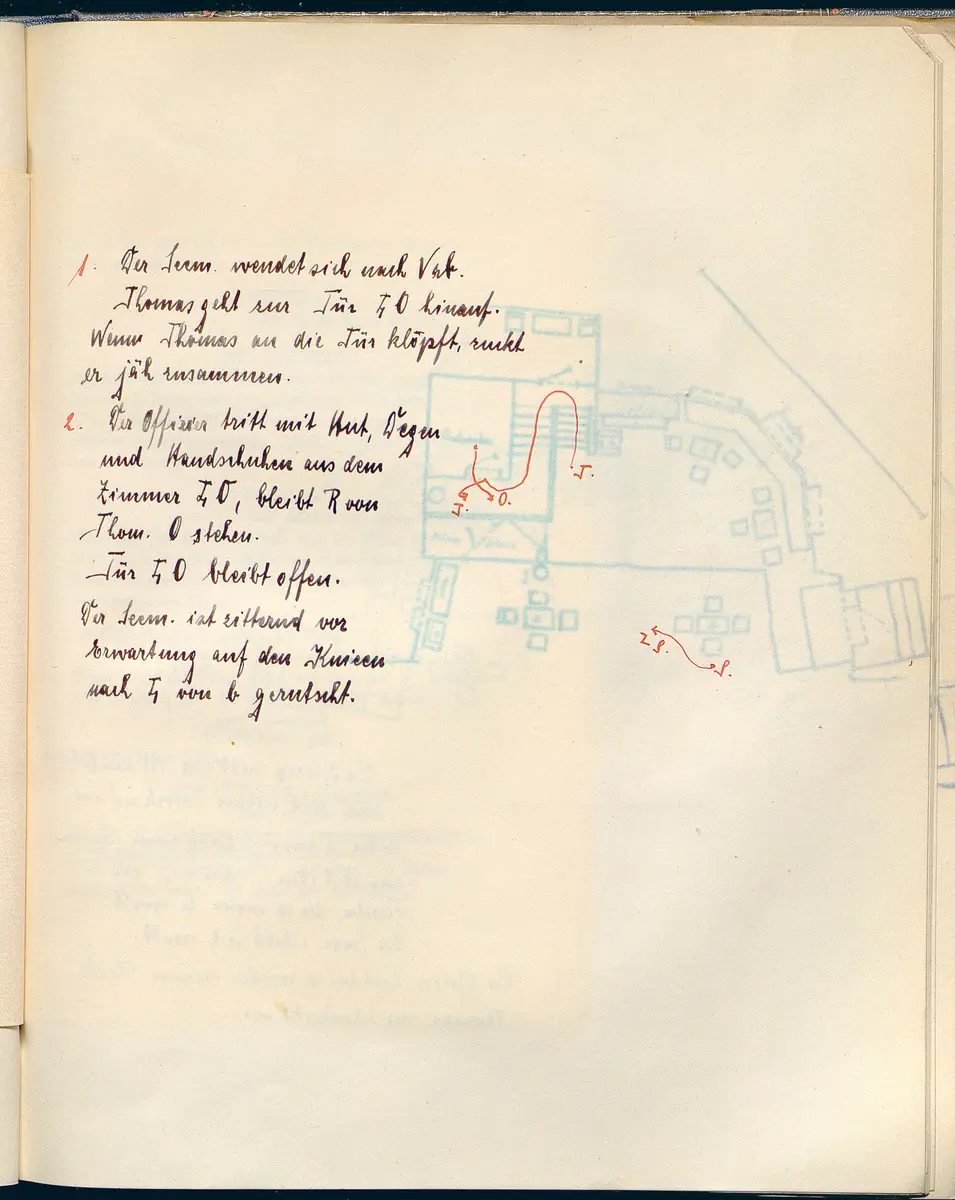 1. Der Seem. wendet sich nach Vrb.
Thomas geht zur Tür L O hinauf.
Wenn Thomas an die Tür klöpft, zuckt
er jäh zusammen.
2. Der Offizier tritt mit Hut, Degen
und Handschuhen aus dem
Zimmer L O, bleibt R von
Thom. O stehen.
Tür L O bleibt offen.
Der Seem. ist zitternd vor
Erwartung auf den Knieen
nach L von b gerutscht.
T.
T. O.
2 S. S.